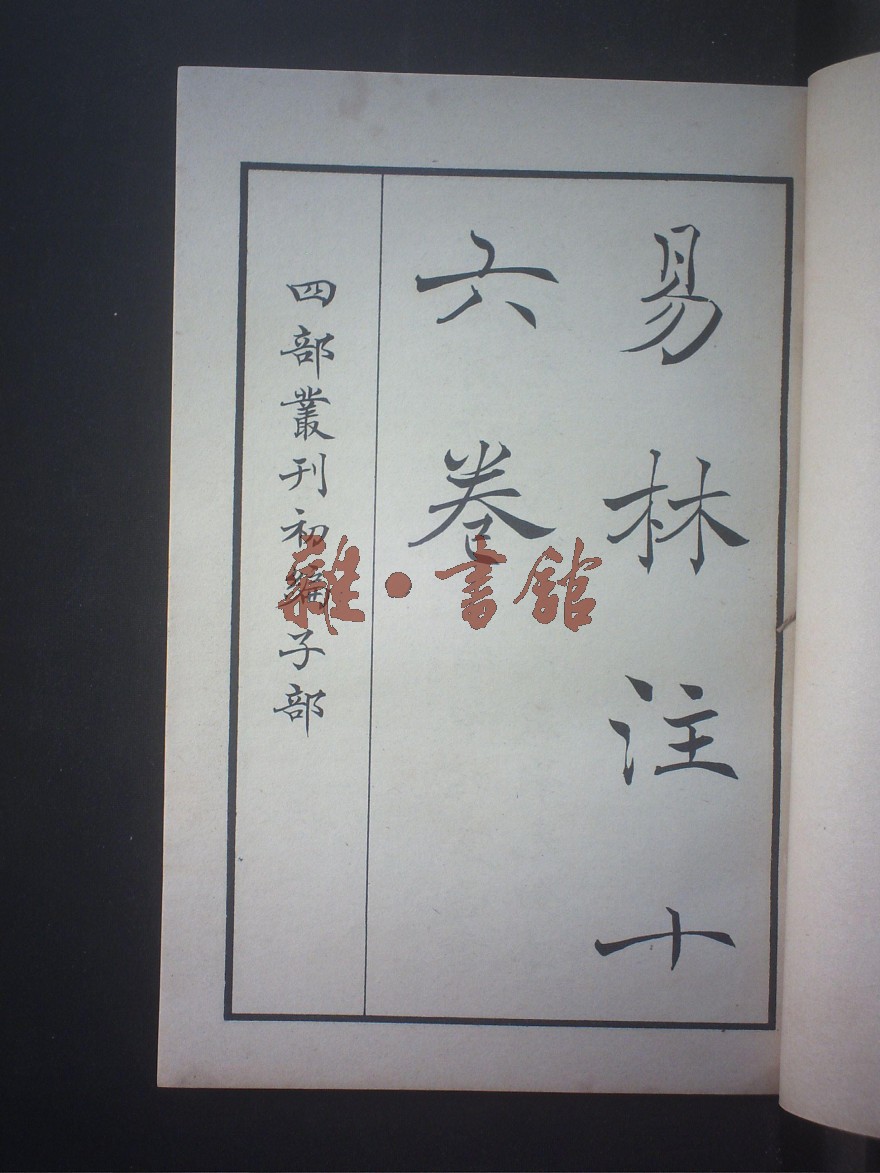 易林注十
六卷
四部叢刊初編子部
雜·書館